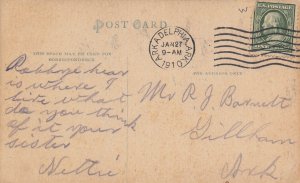 POST CARD
THIS SPACE MAY BE USED FOR
CORRESPONDENCE
THE ADDRESS ONLY
ARKADELPHIA, ARK.
JAN 27
9-AM
1910
U.S. POSTAGE
hear
is where I
live what
do you think
of it your
sister
Nettie
Mr R J Barnett
Gillham
Ark